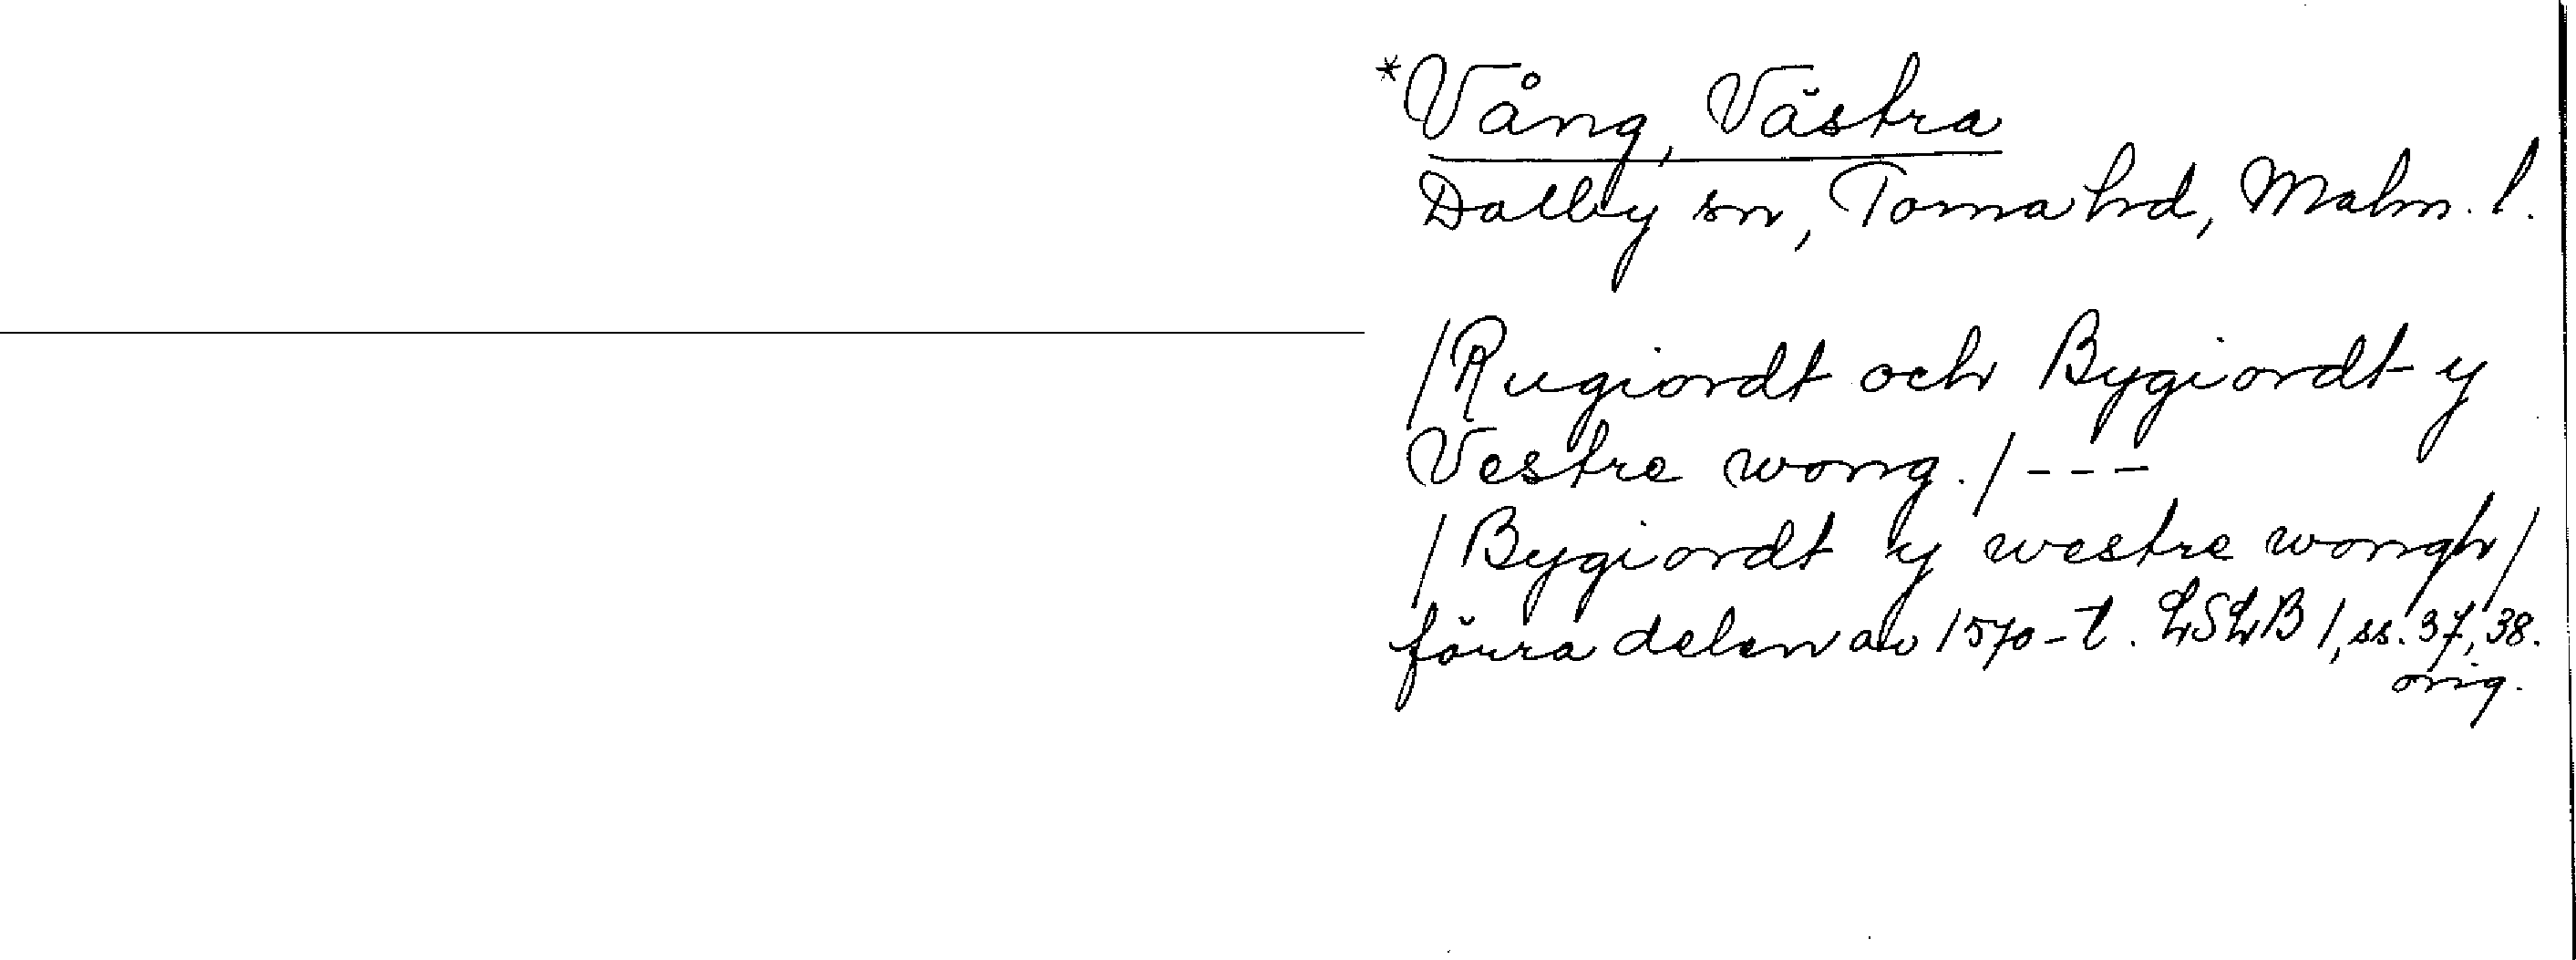 *Vång, Västra
Dalby sn, Torna hd, Malm. l.
/Rugiordt och Bygiordt y
Vestre wong./---
/Bygiordt y westre wongh/
förra delen av 1570-t. LSLB 1, ss. 37, 38.
orig.